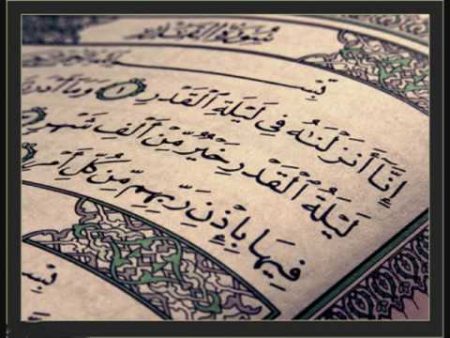 إِنَّآ أَنزَلْنَٰهُ فِى لَيْلَةِ ٱلْقَدْرِ ١ وَمَآ
لَيْلَةُ ٱلْقَدْرِ خَيْرٌ مِّنْ أَلْفِ شَهْرٍ
فِيهَا بِإِذْنِ رَبِّهِم مِّن كُلِّ أَمْرٍ